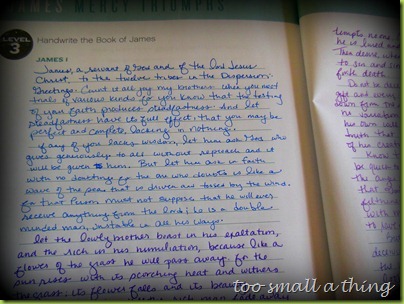 MERCY TRIUMPHS
LEVEL
3
Handwrite the Book of James
JAMES I
James, a servant of God and of the Lord Jesus
Christ, to the twelve tribes in the Dispersion:
Greetings. Count it all joy my brothers when you meet
trials of various kinds for you know that the testing
of your faith produces steadfastness. And let
steadfastness have its full effect, that you may be
perfect and complete, lacking in nothing.
If any of you lacks wisdom, let him ask God who
gives generously to all without reproach and it
will be given to him. But let him ask in faith
with no doubting for the one who doubts is like a
wave of the sea that is driven and tossed by the wind.
For that person must not suppose that he will ever
receive anything from the Lord; he is a double-
minded man, unstable in all his ways.
Let the lowly brother boast in his exaltation,
and the rich in his humiliation, because like a
flower of the grass he will pass away. For the
sun rises with its scorching heat and withers
the grass; its flower falls and its
rich man fade away
tempts no one
he is lured and
Then desire when
to sin and sin
forth death.
his own will
truth that
of his
be quick
the anger
that
too small a thing